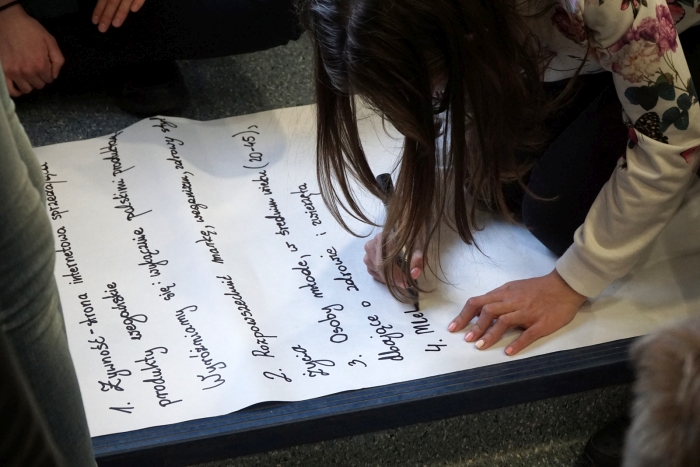 1. Żywność - strona internetowa sprzedająca
produkty wegańskie
Wyróżniamy się wyłącznie polskimi produktami
2. Rozpowszechnić markę, weganizm, zdrowy styl
życia
3. Osoby młode, w średnim wieku (20-45),
dbające o zdrowie i zwierzęta
4. Miel